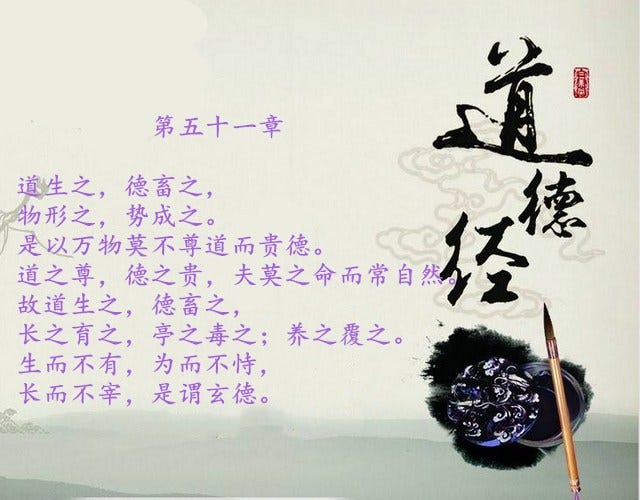 第五十一章
道生之，德畜之，
物形之，势成之。
是以万物莫不尊道而贵德。
道之尊，德之贵，夫莫之命而常自然。
故道生之，德畜之，
长之育之，亭之毒之；养之覆之。
生而不有，为而不恃，
长而不宰，是谓玄德。
道德经